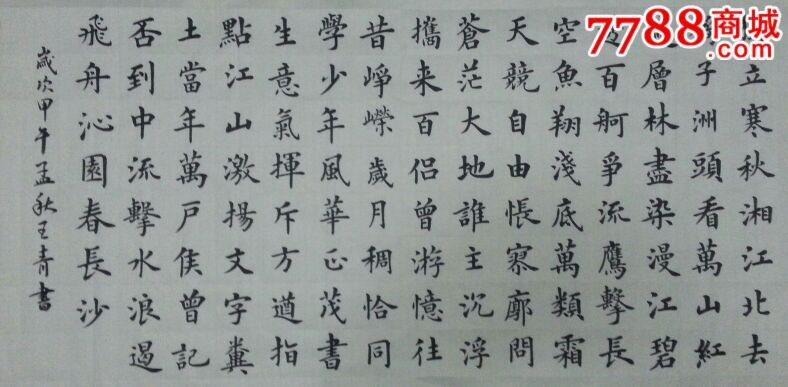 7788商城
.com
立寒秋湘江北去
子洲頭看萬山紅
層林盡染漫江碧
百舸爭流鷹擊長
空魚翔淺底萬類霜
天競自由悵寥廓問
蒼茫大地誰主沉浮
攜来百侣曾游憶往
昔崢嶸歲月稠恰同
學少年風華正茂書
生意氣揮斥方遒指
點江山激揚文字糞
土當年萬戶侯曾記
否到中流擊水浪遏
飛舟沁園春長沙
歲次甲午孟秋王青書